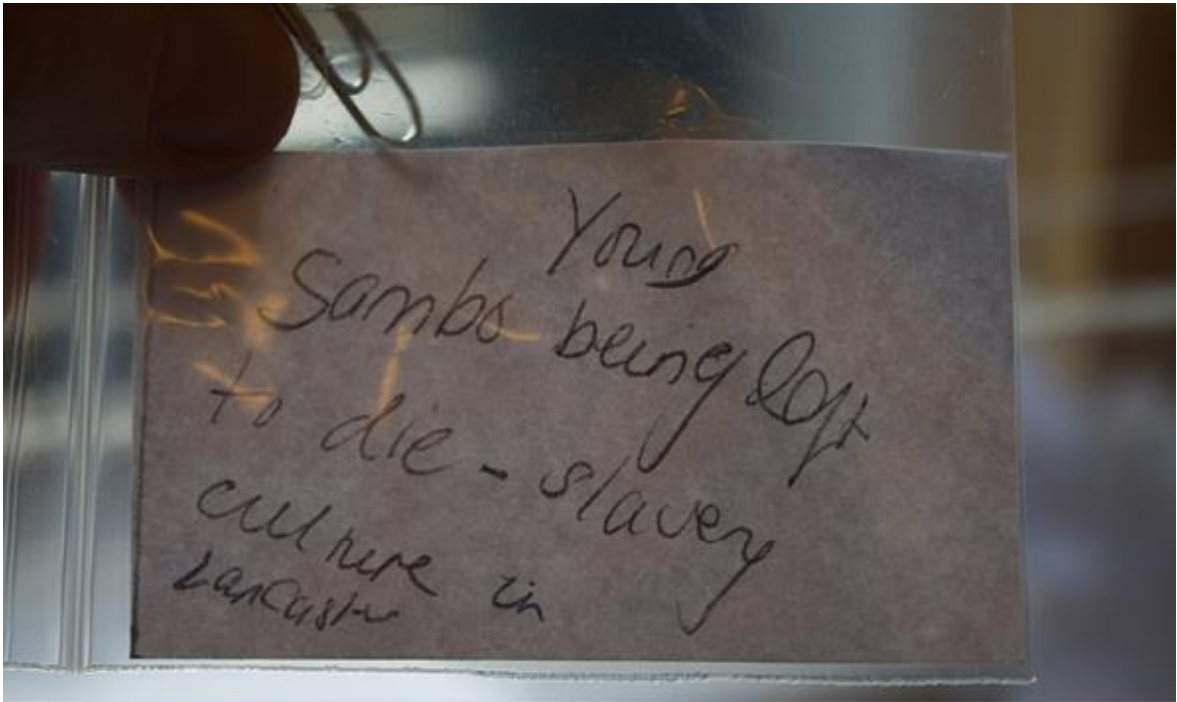 Young
Sambo being left
to die - slavery
culture in
Lancaster